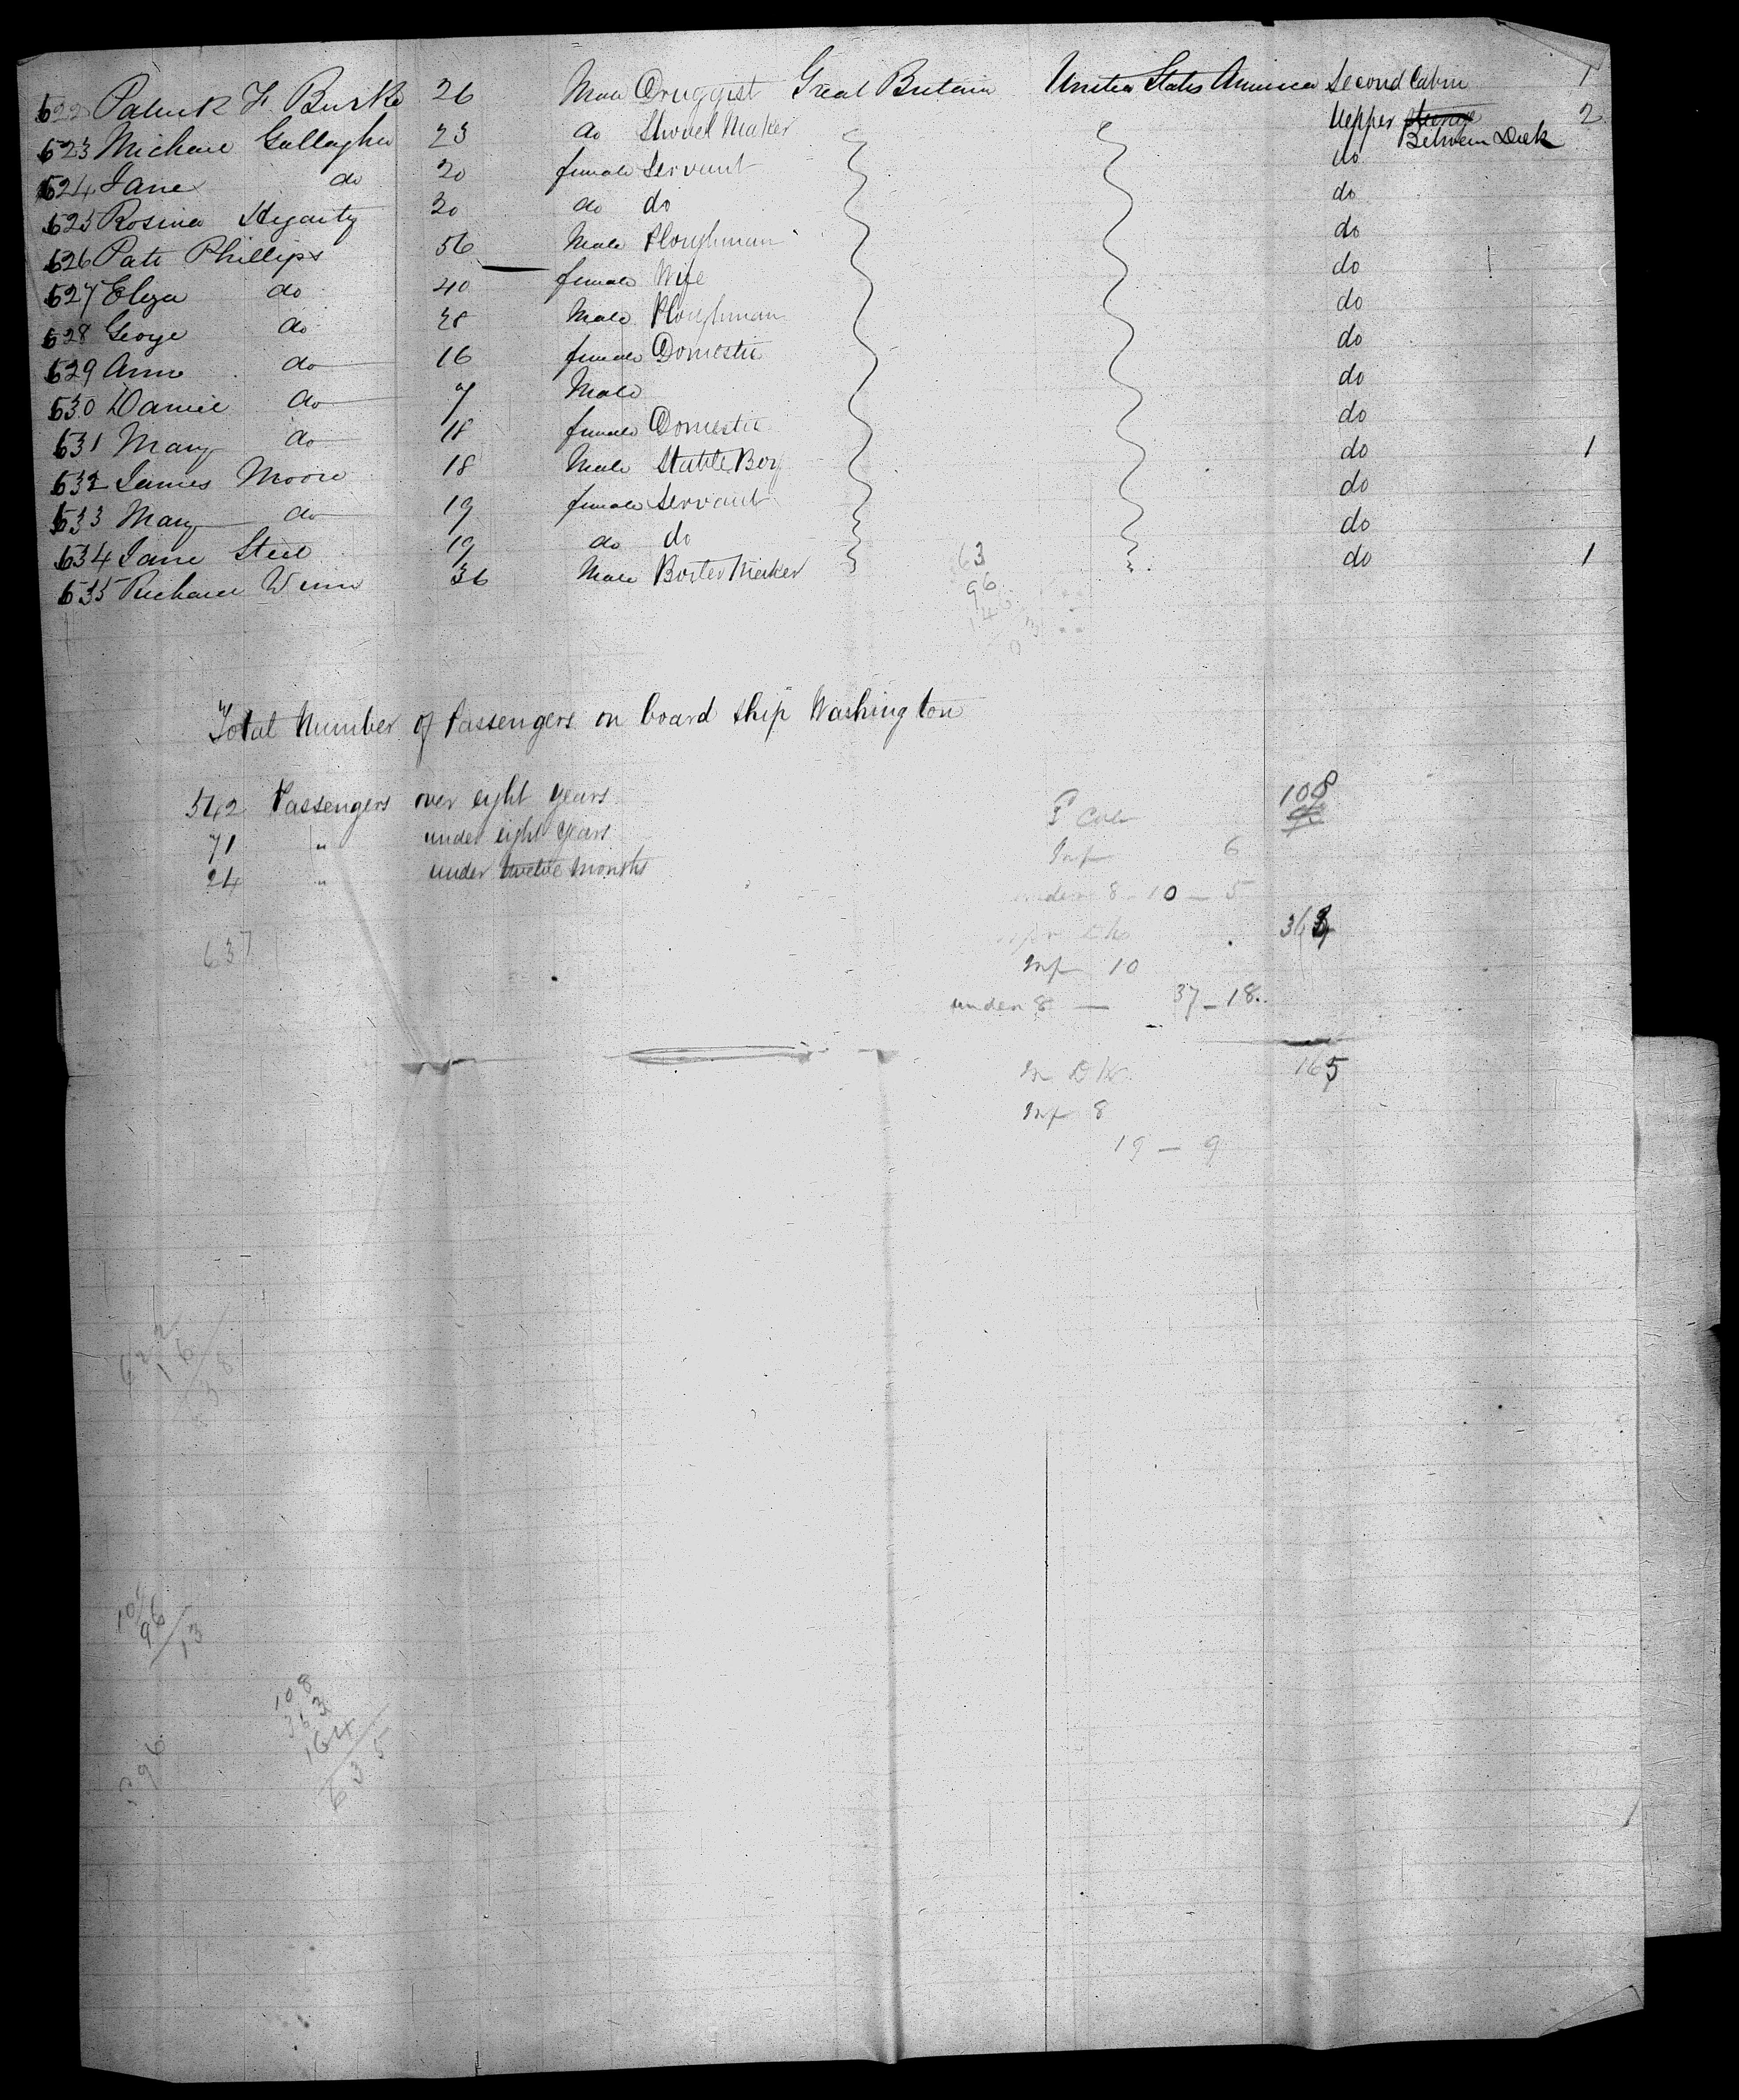 622 Patrick F. Burke 26 Male Druggist Great Britain United States America Second Cabin 1
623 Michael Gallagher 23 do Shovel Maker Uepper Between Deck 2
624 Jane do 20 female Servant do
625 Rosina Hegarty 30 do do do
626 Patt Phillips 56 Male Ploughman do
627 Eliza do 40 female Wife do
628 George do 28 Male Ploughman do
629 Ann do 16 female Domestic do
630 Daniel do 7 Male do
631 Mary do 18 female Domestic do
632 James Moore 18 Male Stable Boy do 1
633 Mary do 19 female Servant do
634 Jane Steel 19 do do do
635 Richard Winn 36 Male do 1
63
96
Total Number of Passengers on board Ship Washington
542 Passengers over eight years
71 " under eight years
24 " under twelve Months
637
108
Inf 6
under 8 - 10 - 5
363
Inf 10
under 8 — 37 - 18
165
Inf 8
19 - 9
622
16
638
109
96
13
108
363
164
635
396